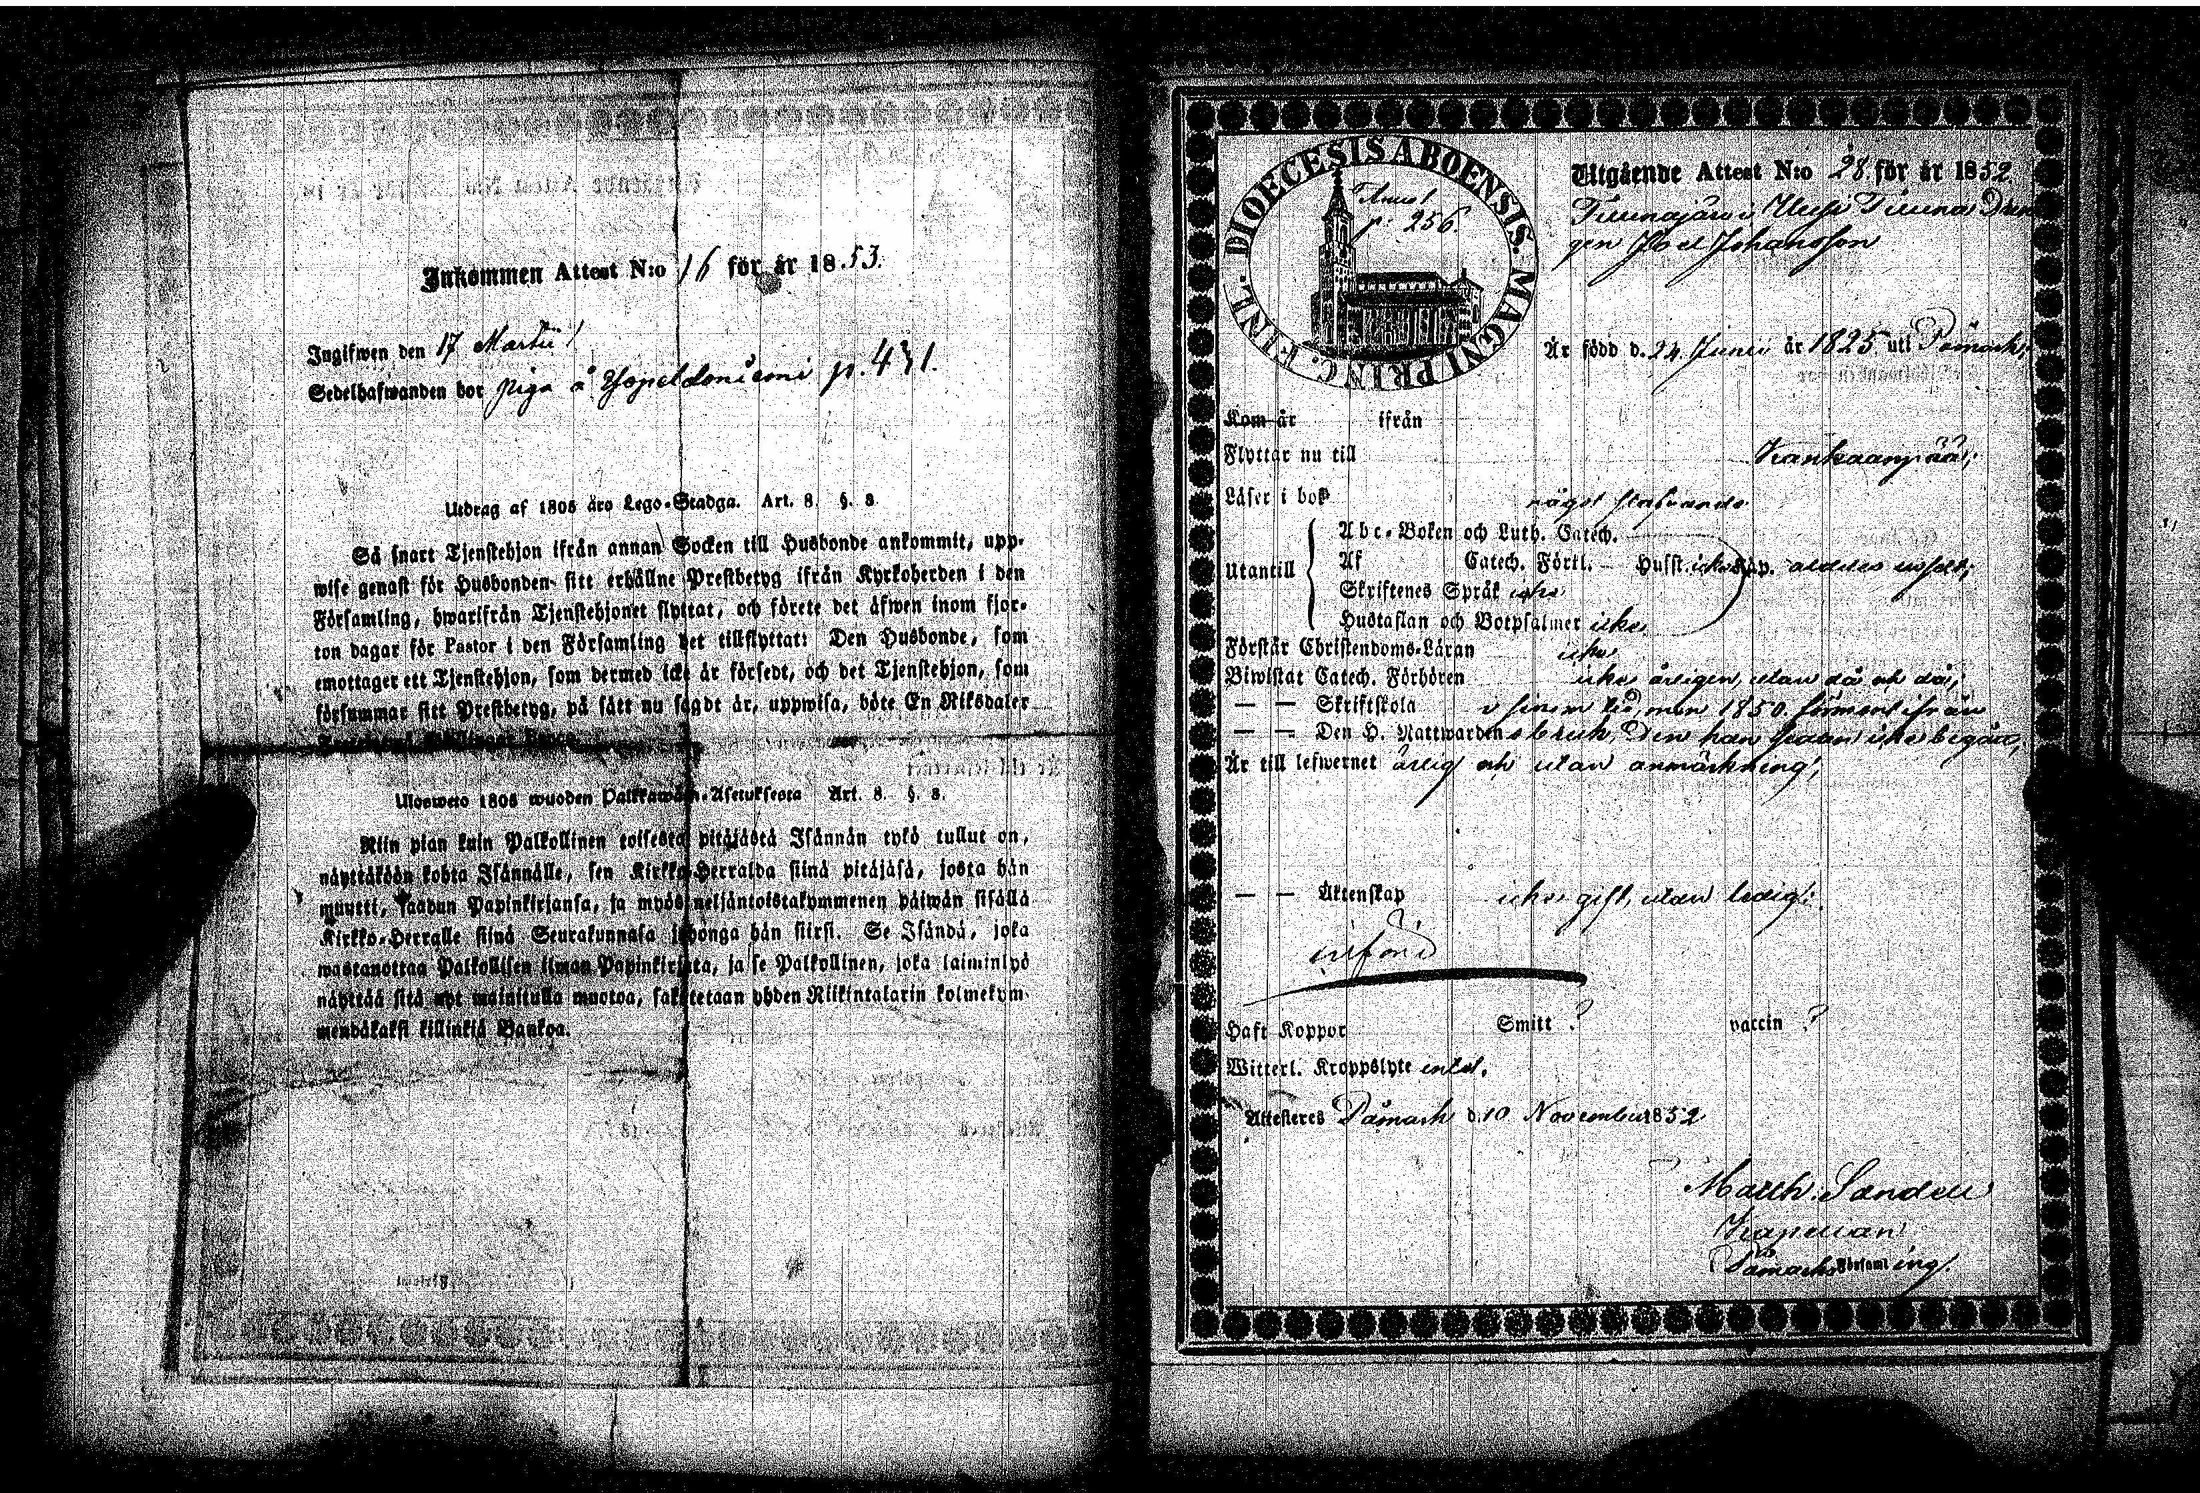 Inkommen Attest N:o 16 för år 1853.
Ingifwen den 17 Martii
Sedelhafwanden bor piga å p. 431.
Utdrag af 1805 års Lego-Stadga. Art. 8. §. 8
Så snart Tjenstehjon ifrån annan Socken till Husbonde ankommit, upp-
wise genast för Husbonden sitt erhållne Prestbetyg ifrån Kyrkoherden i den
Församling, hwarifrån Tjenstehjonet flyttat, och förete det äfwen inom fjor-
ton dagar för Pastor i den Församling det tillflyttat: Den Husbonde, som
emottager ett Tjenstehjon, som dermed icke är försedt, och det Tjenstehjon, som
försummar sitt Prestbetyg, på sätt nu sagdt är, uppwisa, böte En Riksdaler
Ulosweto 1805 wuoden Palkkawäen-Asetuksesta Art. 8. §. 8.
Niin pian kuin Palkollinen toisesta pitäjästä Isännän tykö tullut on,
näyttäköön kohta Isännälle, sen Kirkko-Herralda siinä pitäjäsä, josta hän
muutti, saadun Papinkirjansa, ja myös neljäntoistakymmenen päiwän sisällä
Kirkko-Herralle siinä Seurakunnasa johonga hän siirsi. Se Isändä, joka
wastanottaa Palkollisen ilman Papinkirjata, ja se Palkollinen, joka laiminlyö
näyttää sitä nyt mainitulla muotoa, sakotetaan yhden Riikintalarin kolmekym-
mendäkaksi killinkiä Bankoa.
DIOECESIS ABOENSIS. MAGNI PRINC. FINL.
p. 256.
Utgående Attest N:o 28 för år 1852.
Johansson
Är född d. 24 Junii år 1825 uti Påmark;
Kom år ifrån
Flyttar nu till Kankaanpää;
Läser i bok något stafvande
Utantill
Abc-Boken och Luth. Catech.
Af Catech. Förkl. Husst. icke Kap. alldeles uselt;
Skriftenes Språk icke
Hustaflan och Botpsalmer icke,
Förstår Christendoms-Läran icke
Biwistat Catech. Förhören icke årligen, utan då och då;
— — Skriftskola i sinom tid, men 1850 förment ifrån
— — Den H. Nattwardens bruk, Den han sedan icke begått,
Är till lefwernet ärlig och utan anmärkning;
— — Äktenskap icke gift, utan ledig;
Haft Koppor Smitt ? vaccin ?
Witterl. Kroppslyte intet.
Attesteres Påmark d. 10 November 1852
Matth. Sandell
Kapellan
Påmarks Församling.